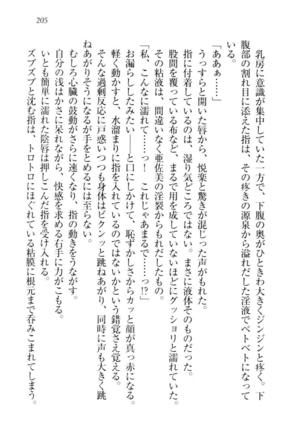 乳房に意識が集中していた一方で、下腹の奥がひときわ大きくジンジンと疼く。下
腹部の割れ目に添えた指は、その疼きの源泉から溢れだした淫液でベトベトになって
いる。
「ああぁ……」
うっすらと開いた唇から、悦楽と驚きが混じった声がもれた。
指に付着しているのは、湿り気どころではない。まさに液体そのものだ。
股間を覆っている布など、まるで用を成していないほどにグッショリと濡れていた。
その粘液は、間違いなく亜佐美の淫裂からもれだしたもの。
「私、こんなに濡れて……っ！　これじゃあまるで……っ!?」
お漏らししたみたい――と口にしかけて、恥ずかしさからカッと顔が真っ赤になる。
軽く動かすと、水溜まりに指を入れているのではないかという錯覚さえ覚える。
そんな過剰反応に戸惑いつつも身体はビクンッと跳ねあがり、同時に声も大きく跳
ねあがりそうになるが手をとめるには至らない。
むしろ心臓の鼓動がさらに速くなり、指の動きをうながす。
自分の浅はかさに呆れながら、快感を求める右手に力がこもる。
たっぷりと濡れた陰唇は押しこんだ指を受け入れる。
ズブズブと沈む指は、トロトロにほぐれている粘膜に根元まで呑みこまれてしまう。
205